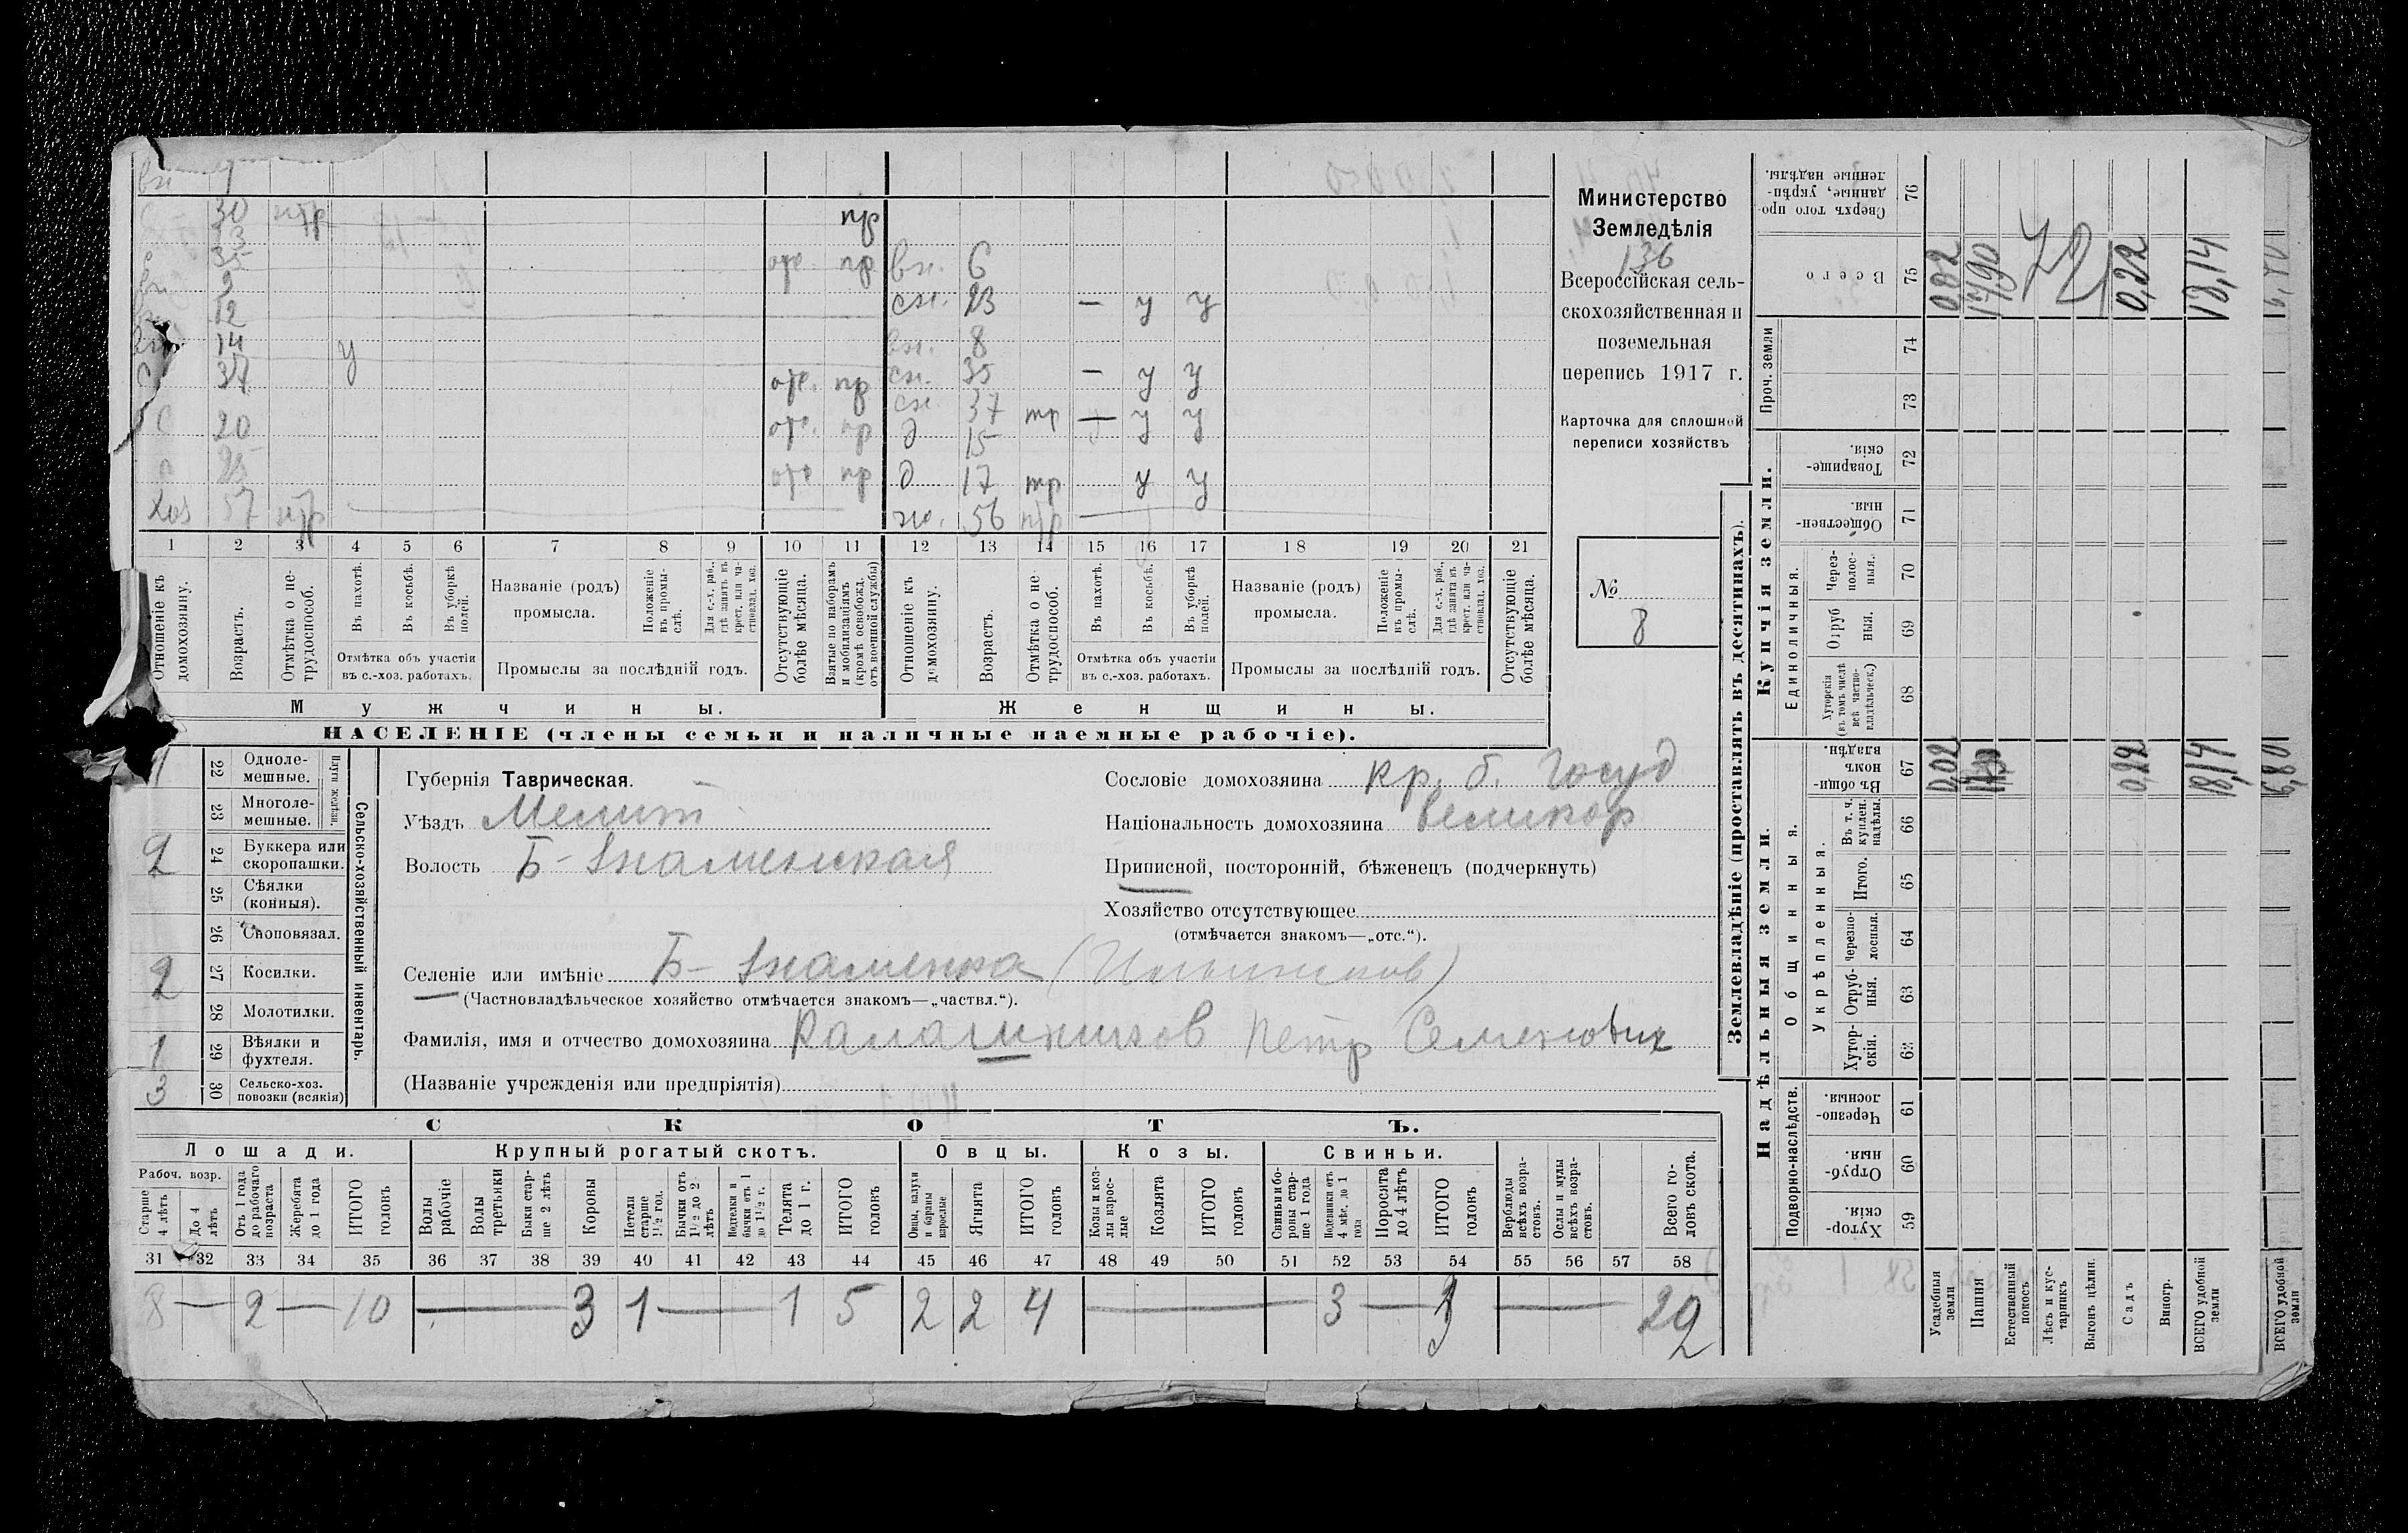 вн
30 нтр пр
13
35 отс. пр вн. 6
вн 9 сн. 23 — у у
12
вн 14 у вн. 8
С 37 отс. пр сн. 35 — у у
сн. 37 нтр — у у
С 20 отс. пр д 15
п 25 отс пр д 17 нтр у у
Хоз 57 нтр ж. 56 нтр —
1 2 3 4 5 6 7 8 9 10 11 12 13 14 15 16 17 18 19 20 21
Отношеніе къ домохозяину.
Возрастъ.
Отмѣтка о нетрудоспособ.
Въ пахотѣ.
Въ косьбѣ.
Въ уборкѣ полей.
Отмѣтка объ участіи въ с.-хоз. работахъ.
Названіе (родъ) промысла.
Положеніе въ промыслѣ.
Для с.-х. раб., гдѣ занятъ въ крест. или частновлад. хоз.
Промыслы за послѣдній годъ.
Отсутствующіе болѣе мѣсяца.
Взятые по наборамъ и мобилизаціямъ (кромѣ освобожд. отъ военной службы)
Отношеніе къ домохозяину.
Возрастъ.
Отмѣтка о нетрудоспособ.
Въ пахотѣ.
Въ косьбѣ.
Въ уборкѣ полей.
Отмѣтка объ участіи въ с.-хоз. работахъ.
Названіе (родъ) промысла.
Положеніе въ промыслѣ.
Для с.-х. раб., гдѣ занятъ въ крест. или частновлад. хоз.
Промыслы за послѣдній годъ.
Отсутствующіе болѣе мѣсяца.
Мужчины. Женщины.
НАСЕЛЕНІЕ (члены семьи и наличные наемные рабочіе).
Министерство
Земледѣлія
136
Всероссійская сель-
скохозяйственная и
поземельная
перепись 1917 г.
Карточка для сплошной
переписи хозяйствъ
№
8
Сельско-хозяйственный инвентарь.
Плуги желѣзн.
1 22 Одноле-мешные.
23 Многоле-мешные.
2 24 Буккера или скоропашки.
25 Сѣялки (конныя).
26 Сноповязал.
2 27 Косилки.
28 Молотилки.
1 29 Вѣялки и фухтеля.
3 30 Сельско-хоз. повозки (всякія)
Губернія Таврическая.
Уѣздъ Мелит
Волость Б-Знаменская
Сословіе домохозяина кр. б. Госуд
Національность домохозяина великор
Приписной, посторонній, бѣженецъ (подчеркнуть)
Хозяйство отсутствующее
(отмѣчается знакомъ—„отс.“).
Селеніе или имѣніе Б-Знаменка
(Частновладѣльческое хозяйство отмѣчается знакомъ—„частвл.“).
Фамилія, имя и отчество домохозяина Калашников Петр Семенович
(Названіе учрежденія или предпріятія)
СКОТЪ.
Лошади. Крупный рогатый скотъ. Овцы. Козы. Свиньи.
Рабоч. возр.
Старше 4 лѣтъ
До 4 лѣтъ
Отъ 1 года до рабочаго возраста
Жеребята до 1 года
ИТОГО головъ
Волы рабочіе
Волы третьяки
Быки старше 2 лѣтъ
Коровы
Нетели старше 1 1/2 год.
Бычки отъ 1 1/2 до 2 лѣтъ
Подтелки и бычки отъ 1 до 1 1/2 г.
Телята до 1 г.
ИТОГО головъ
Овцы, валухи и бараны взрослые
Ягнята
ИТОГО головъ
Козы и козлы взрослые
Козлята
ИТОГО головъ
Свиньи и боровы старше 1 года
Подсвинки отъ 4 мѣс. до 1 года
Поросята до 4 лѣтъ
ИТОГО головъ
Верблюды всѣхъ возрастовъ.
Ослы и мулы всѣхъ возрастовъ.
Всего головъ скота.
31 32 33 34 35 36 37 38 39 40 41 42 43 44 45 46 47 48 49 50 51 52 53 54 55 56 57 58
8 — 2 — 10 — 3 1 — 1 5 2 2 4 — 3 — 3 — 22
Землевладѣніе (проставлять въ десятинахъ).
Надѣльныя земли.
Купчія земли.
Проч. земли
Подворно-наслѣдств.
Общинныя.
Укрѣпленныя.
Единоличныя.
Хуторскія. 59
Отрубныя. 60
Черезполосныя. 61
Хуторскія. 62
Отрубныя. 63
Черезполосныя. 64
Итого. 65
Въ т. ч. куплен. надѣлы. 66
Въ общинномъ владѣн. 67
Хуторскія (въ томъ числѣ всѣ частновладѣльческ.) 68
Отрубныя. 69
Черезполосныя. 70
Общественныя. 71
Товарищескія. 72
73
74
Всего 75
Сверхъ того проданные, укрѣпленные надѣлы. 76
Усадебныя земли 0,02 0,02
Пашня 17,90
Естественный покосъ
Лѣсъ и кустарникъ
Выгонъ цѣлин.
Садъ 0,22 0,22
Виногр.
ВСЕГО удобной земли 18,14 18,14
ВСЕГО удобной земли 6,80